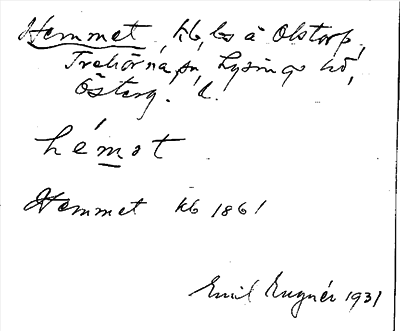 Hemmet, kb, ls å Olstorp,
Trehörna sn, Lysings hd,
Österg. l.
hémot
Hemmet kb 1861
Emil Eugnér 1931